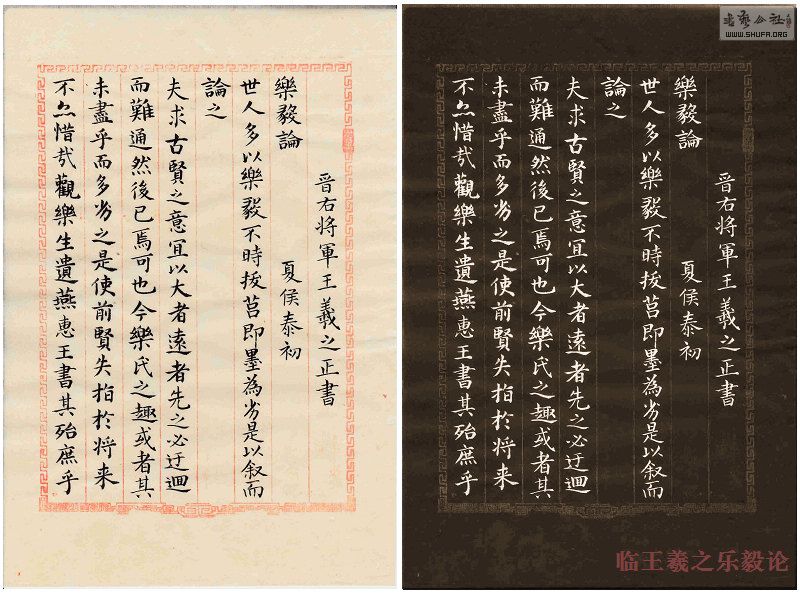 晋右将軍王羲之正書
樂毅論 夏侯泰初
世人多以樂毅不時拔莒即墨為劣是以叙而
論之
夫求古賢之意宜以大者遠者先之必迂迴
而難通然後已焉可也今樂氏之趣或者其
未盡乎而多劣之是使前賢失指於将来
不亦惜哉觀樂生遺燕惠王書其殆庶乎
书艺公社
WWW.SHUFA.ORG
晋右将軍王羲之正書
樂毅論 夏侯泰初
世人多以樂毅不時拔莒即墨為劣是以叙而
論之
夫求古賢之意宜以大者遠者先之必迂迴
而難通然後已焉可也今樂氏之趣或者其
未盡乎而多劣之是使前賢失指於将来
不亦惜哉觀樂生遺燕惠王書其殆庶乎
临王羲之乐毅论